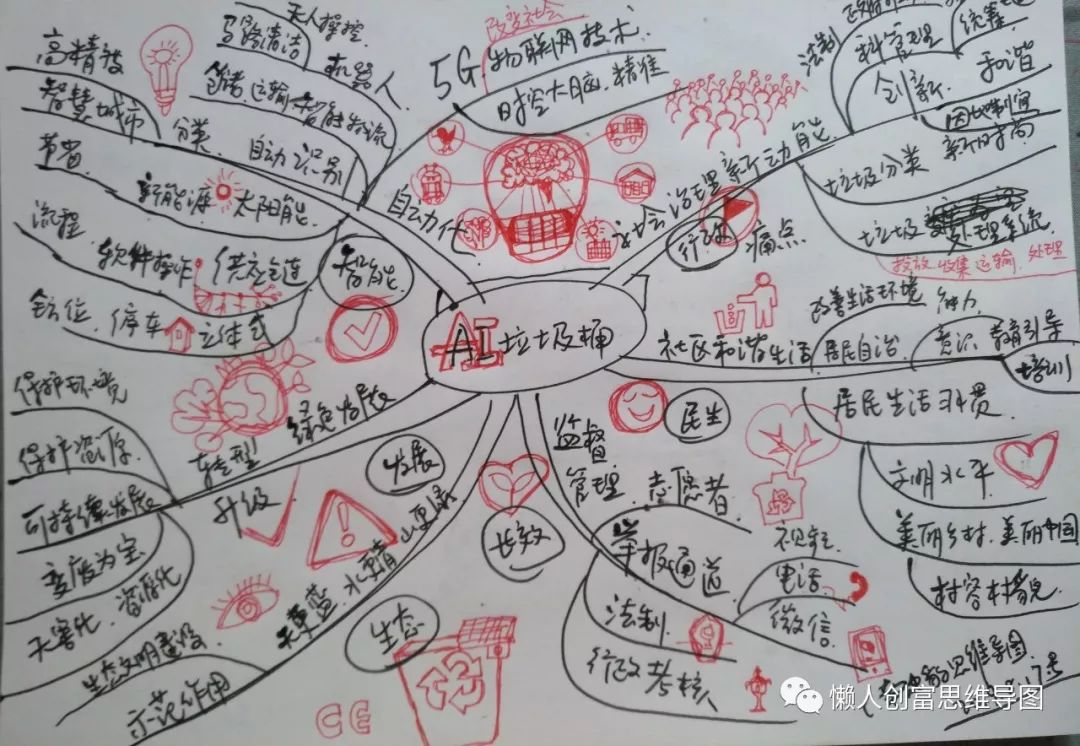 AI垃圾桶
智能
自动化
5G
改变社会
物联网技术
时控大脑.精准
无人操控.
马路清洁
机器人.
运输
智能物流
自动识别
分类.
高精技
智慧城市
节省.
新能源
太阳能
流程.
软件操作
供应链
停车
立体式
绿色发展
转型
升级
发展
保护环境
保护资源.
可持续发展
变废为宝
无害化.资源化
生态
天更蓝 水更清 山更绿
生态文明建设
示范作用
CE
长效
监督
管理.
志愿者.
举报通道
视频
电话
微信
法制.
行政考核
民生
社区和谐生活
改善生活环境
居民自治.
能力
意识.
教育引导
培训
居民生活习惯
文明水平
美丽乡村.美丽中国
村容村貌
行政
社会治理新动能
痛点
法制
科管理
统筹
创新.
和谐
因地制宜
垃圾分类
新时尚
垃圾
处理系统
投放 收集 运输.处理
思维导图
懒人创富思维导图